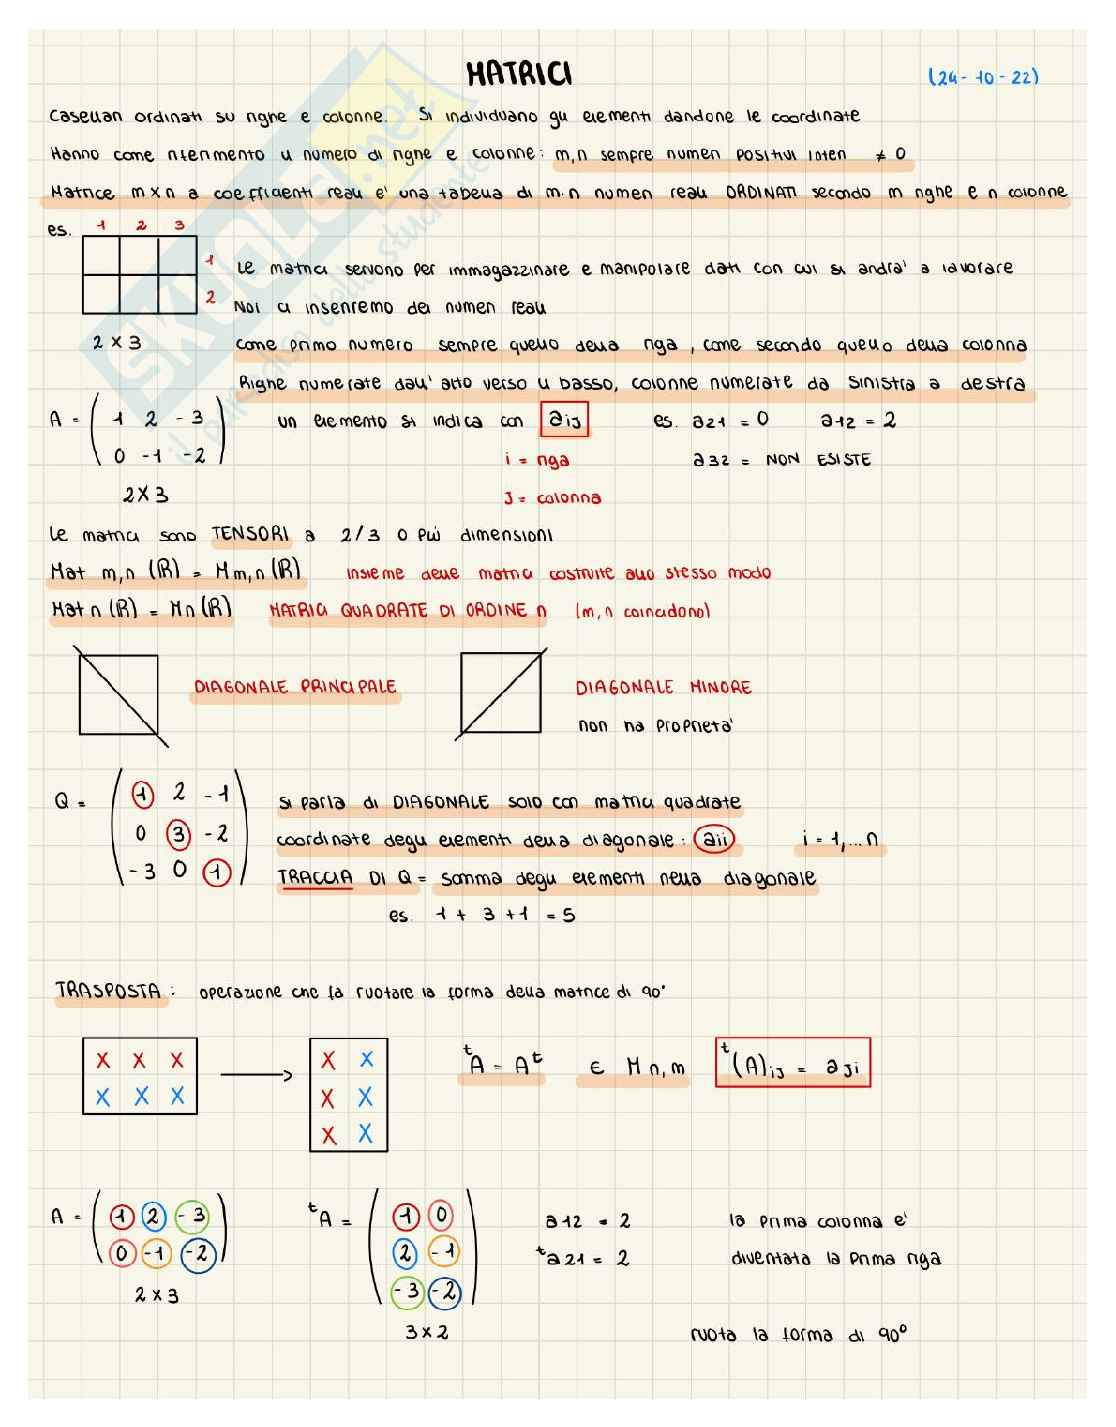 MATRICI (24-10-22)
Casellari ordinati su righe e colonne. Si individuano gli elementi dandone le coordinate
Hanno come riferimento il numero di righe e colonne: m,n sempre numeri positivi interi ≠ 0
Matrice m×n a coefficienti reali e' una tabella di m·n numeri reali ORDINATI secondo m righe e n colonne
es. 1 2 3
1
2
Le matrici servono per immagazzinare e manipolare dati con cui si andra' a lavorare
Noi ci inseriremo dei numeri reali
2 × 3
Come primo numero sempre quello della riga, come secondo quello della colonna
Righe numerate dall'alto verso il basso, colonne numerate da sinistra a destra
A = ( 1 2 -3
0 -1 -2 )
2×3
un elemento si indica con aij es. a21 = 0 a12 = 2
i = riga a32 = NON ESISTE
J = colonna
Le matrici sono TENSORI a 2/3 o più dimensioni
Mat m,n (R) = Mm,n (R) insieme delle matrici costruite allo stesso modo
Mat n (R) = Mn (R) MATRICI QUADRATE DI ORDINE n (m,n coincidono)
DIAGONALE PRINCIPALE DIAGONALE MINORE
non ha proprieta'
Q = ( 1 2 -1
0 3 -2
-3 0 1 )
si parla di DIAGONALE solo con matrici quadrate
coordinate degli elementi della diagonale: aii i = 1,...n
TRACCIA DI Q = somma degli elementi nella diagonale
es. 1 + 3 + 1 = 5
TRASPOSTA: operazione che fa ruotare la forma della matrice di 90°
X X X
X X X
X X
X X
X X
ᵗA = Aᵗ ∈ M n,m ᵗ(A)ij = aji
A = ( 1 2 -3
0 -1 -2 )
2 × 3
ᵗA = ( 1 0
2 -1
-3 -2 )
3 × 2
a12 = 2 la prima colonna e'
ᵗa21 = 2 diventata la prima riga
ruota la forma di 90°
SKUOLA.net
il paradiso dello studente